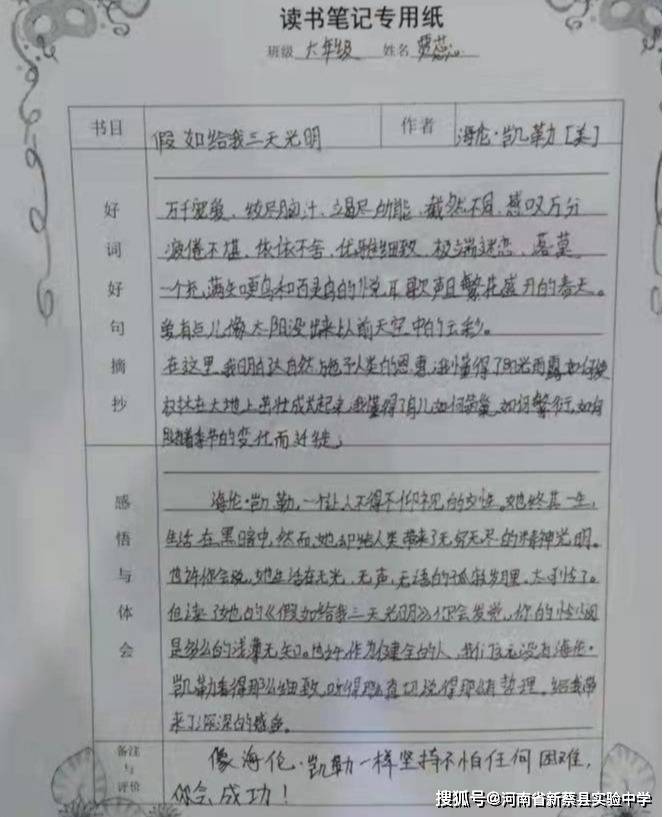 读书笔记专用纸
班级 六年级 姓名 贾蕊
书目 假如给我三天光明 作者 海伦·凯勒[美]
好词好句摘抄
万千宠爱、绞尽脑汁、竭尽所能、截然不同、感叹万分
疲倦不堪、依依不舍、优雅细致、极端迷恋、
一个充满知更鸟和百灵鸟的悦耳歌声且繁花盛开的春天。
有点儿像太阳没出来以前天空中的云彩。
在这里,我明白大自然施予人类的恩惠,我懂得了阳光雨露如何使
在大地上茁壮成长起来,我懂得了鸟儿如何筑巢,如何繁衍,如何
随着季节的变化而迁徙。
感悟与体会
海伦·凯勒,一个让人不得不仰视的女性。她终其一生,
生活在黑暗中,然而,她却给人类带来了无穷无尽的精神光明。
也许你会说,她生活在无光、无声、无语的孤寂岁月里,太可怜了。
但读了她的《假如给我三天光明》你会发觉,你的怜悯
是多么的浅薄无知。也许作为健全的人,我们远远没有海伦·
凯勒看得那么细致,听得那么真切,说得那么有哲理。给我带
来了深深的感
备注与评价
像海伦·凯勒一样坚持不怕任何困难,
你会成功!
搜狐号@河南省新蔡县实验中学